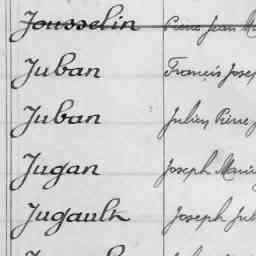 Jousselin Pierre Jean
Juban Francis
Juban Julien Pierre
Jugan Joseph Marie
Jugault Joseph